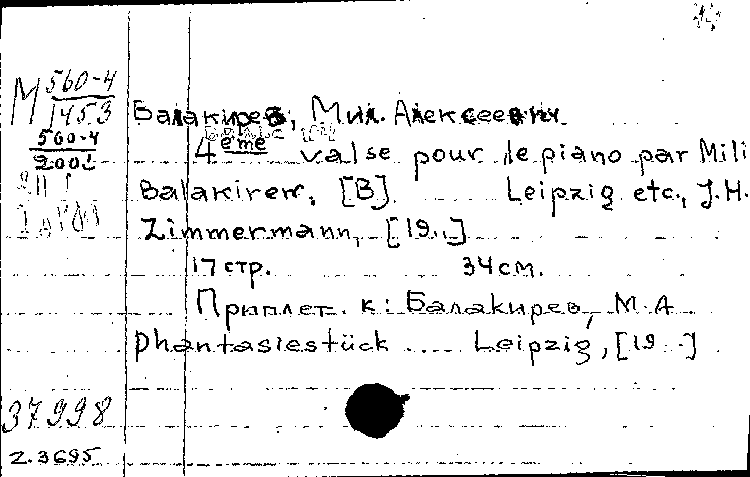 М 560-4
1453
Балакирев, Мил. Алексеевич.
560-4
2001
4ème valse pour le piano par Mili
Balakirew, [В] Leipzig etc., J.H.
Zimmermann, [19..]
17 стр. 34 см.
Приплет. к: Балакирев, М.А
Phantasiestück .... Leipzig, [19..]
37998
2.3695